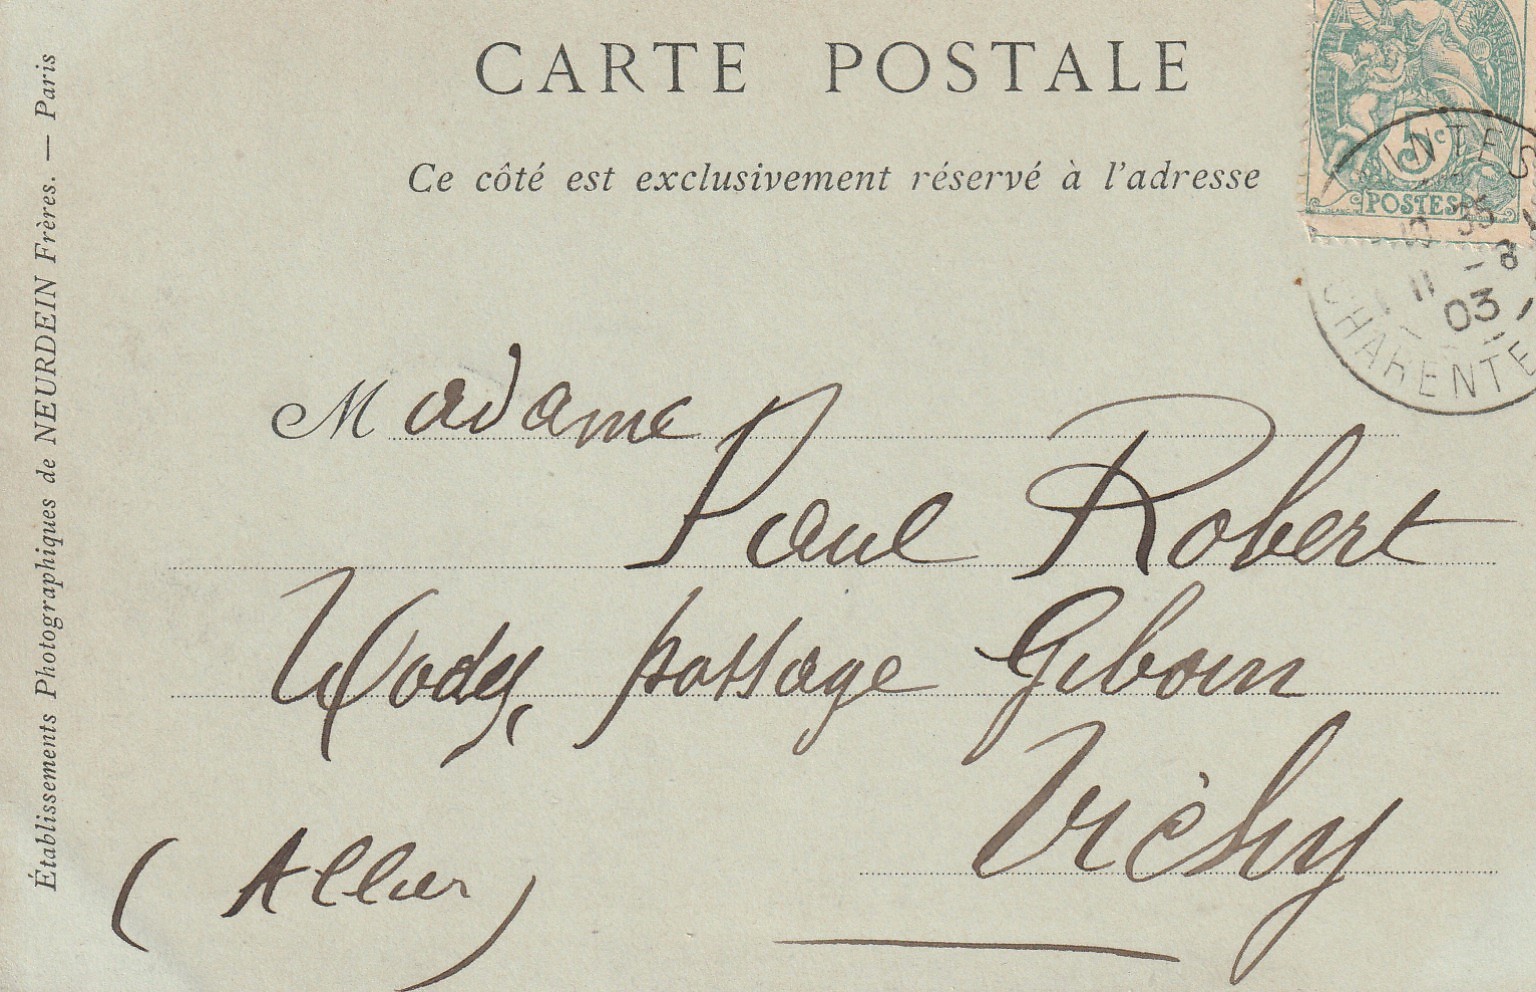 CARTE POSTALE
Ce côté est exclusivement réservé à l'adresse
5c
POSTES
INTES
35
11 -8
03
CHARENTE
Madame
Paul Robert
passage Giboin
Vichy
(Allier)
Établissements Photographiques de NEURDEIN Frères. — Paris